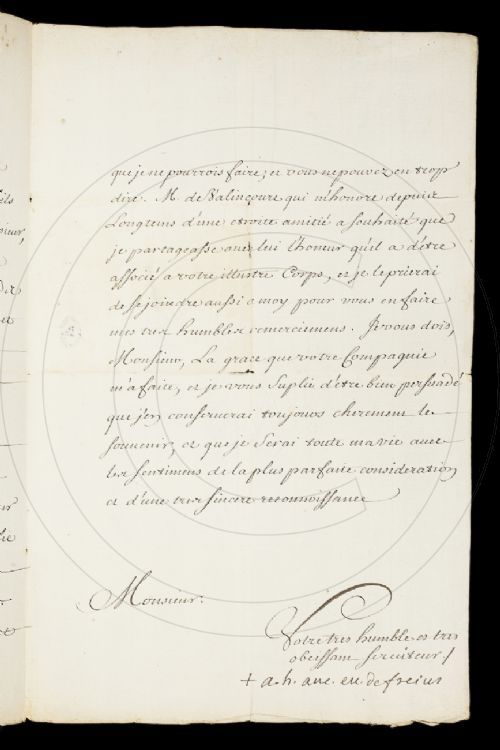 que je ne pourrois faire; et vous ne pouvez en trop
dire. M. de Valincourt qui m'honore depuis
Longtems d'une etroite amitié a souhaité que
je partageasse avec lui l'honeur qu'il a d'être
associé a votre illustre Corps, et je le prierai
de se joindre aussi a moy pour vous en faire
mes tres humbles remerciemens. Je vous dois,
Monsieur, La grace que votre Compagnie
m'a faite, et je vous Suplie d'être bien persuadé
que j'en conserverai toujours cherement le
souvenir, et que je Serai toute ma vie avec
les sentimens de la plus parfaite consideration
et d'une tres sincere reconnoissance
Monsieur.
Votre tres humble et tres
obeissant serviteur
+ a. h. anc. ev. de frejus